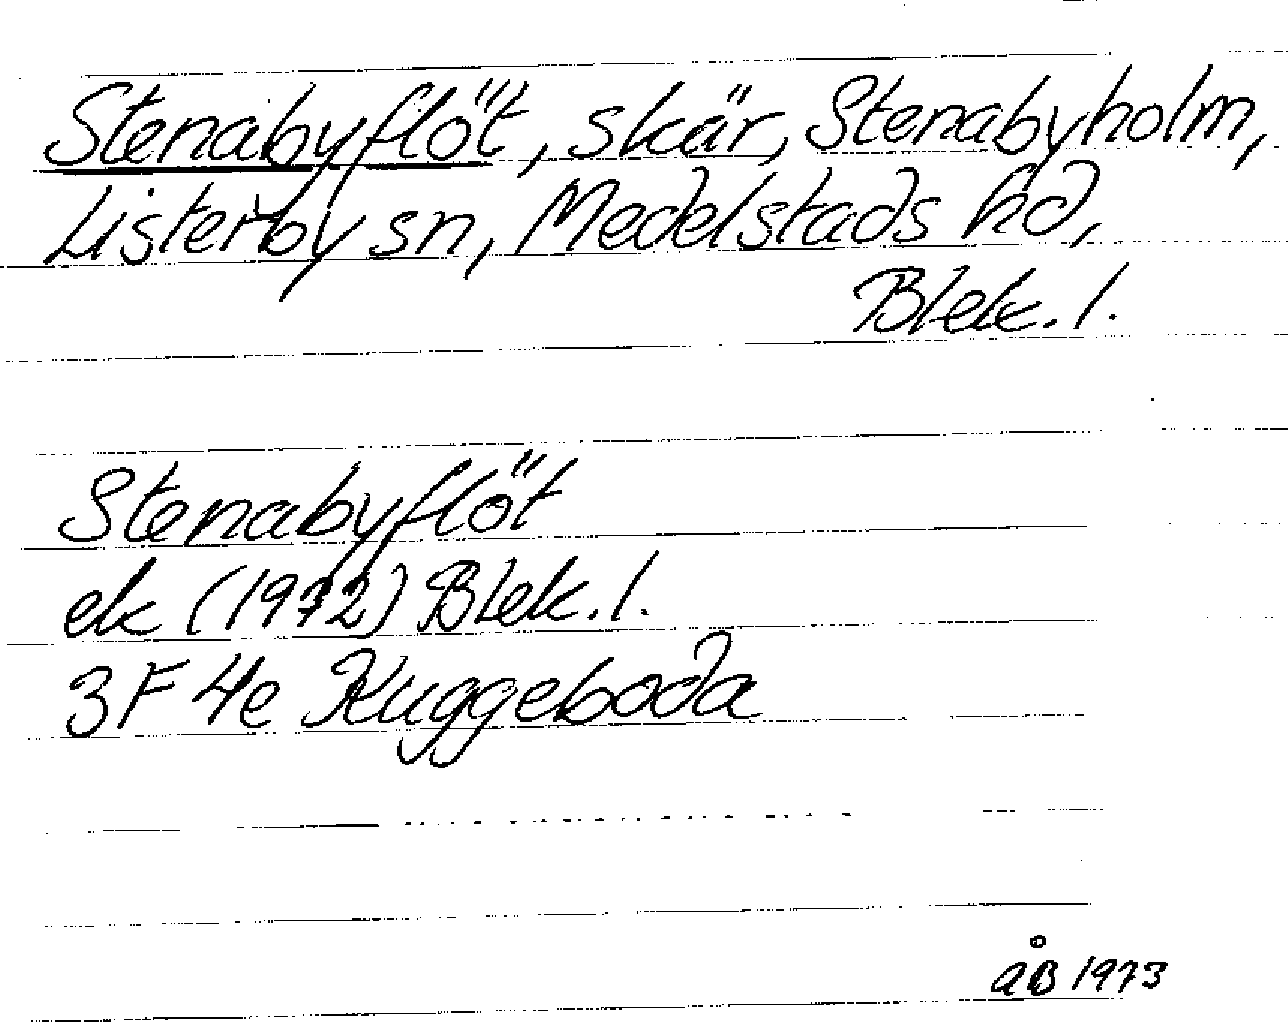 Stenabyflöt, skär, Stenabyholm,
Listerby sn, Medelstads hd,
Blek. l.
Stenabyflöt
ek (1972) Blek. l.
3F 4e Kuggeboda
åB 1973